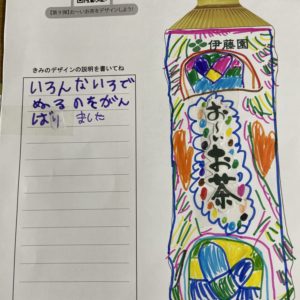 【第9弾】お～いお茶をデザインしよう!
きみのデザインの説明を書いてね
いろんないろで
ぬるのをがん
ばりました
伊藤園
お～いお茶